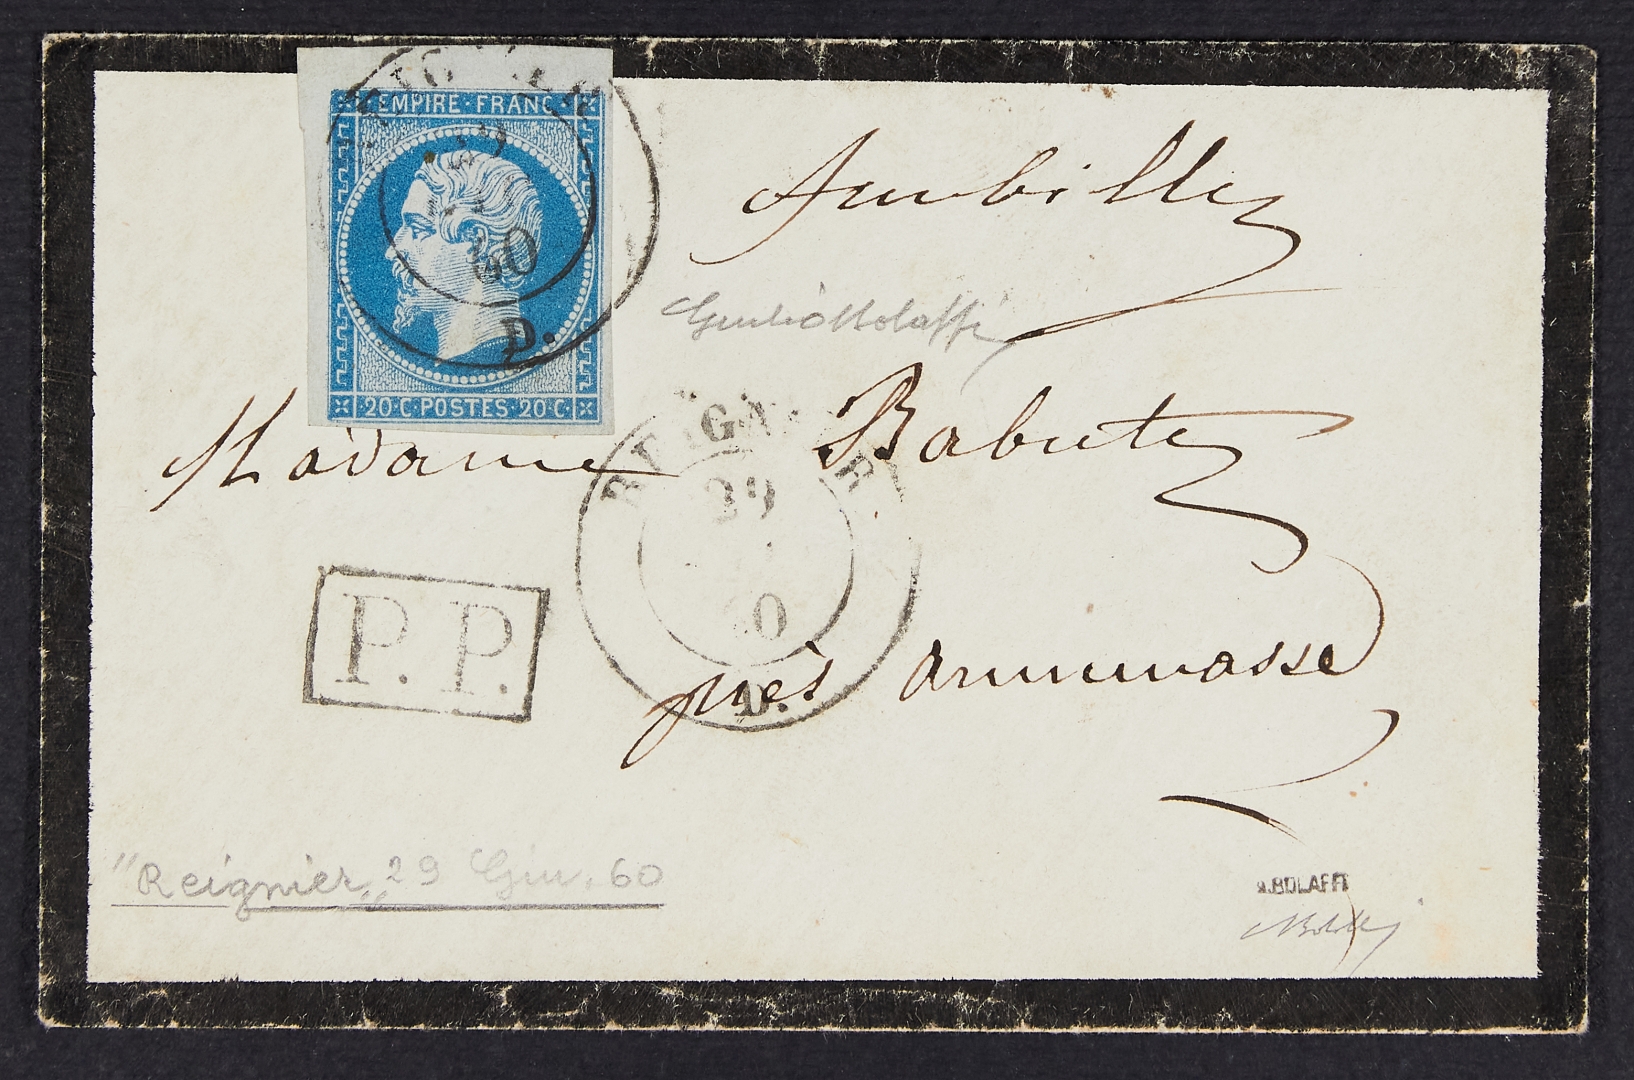 EMPIRE · FRANC
60
D.
20·C·POSTES·20·C·
Ambilly
Giulio Bolaffi
Madame Babuty
29
D.
P. P.
près annemasse
"Reignier" 29 Giu. 60
A. BOLAFFI